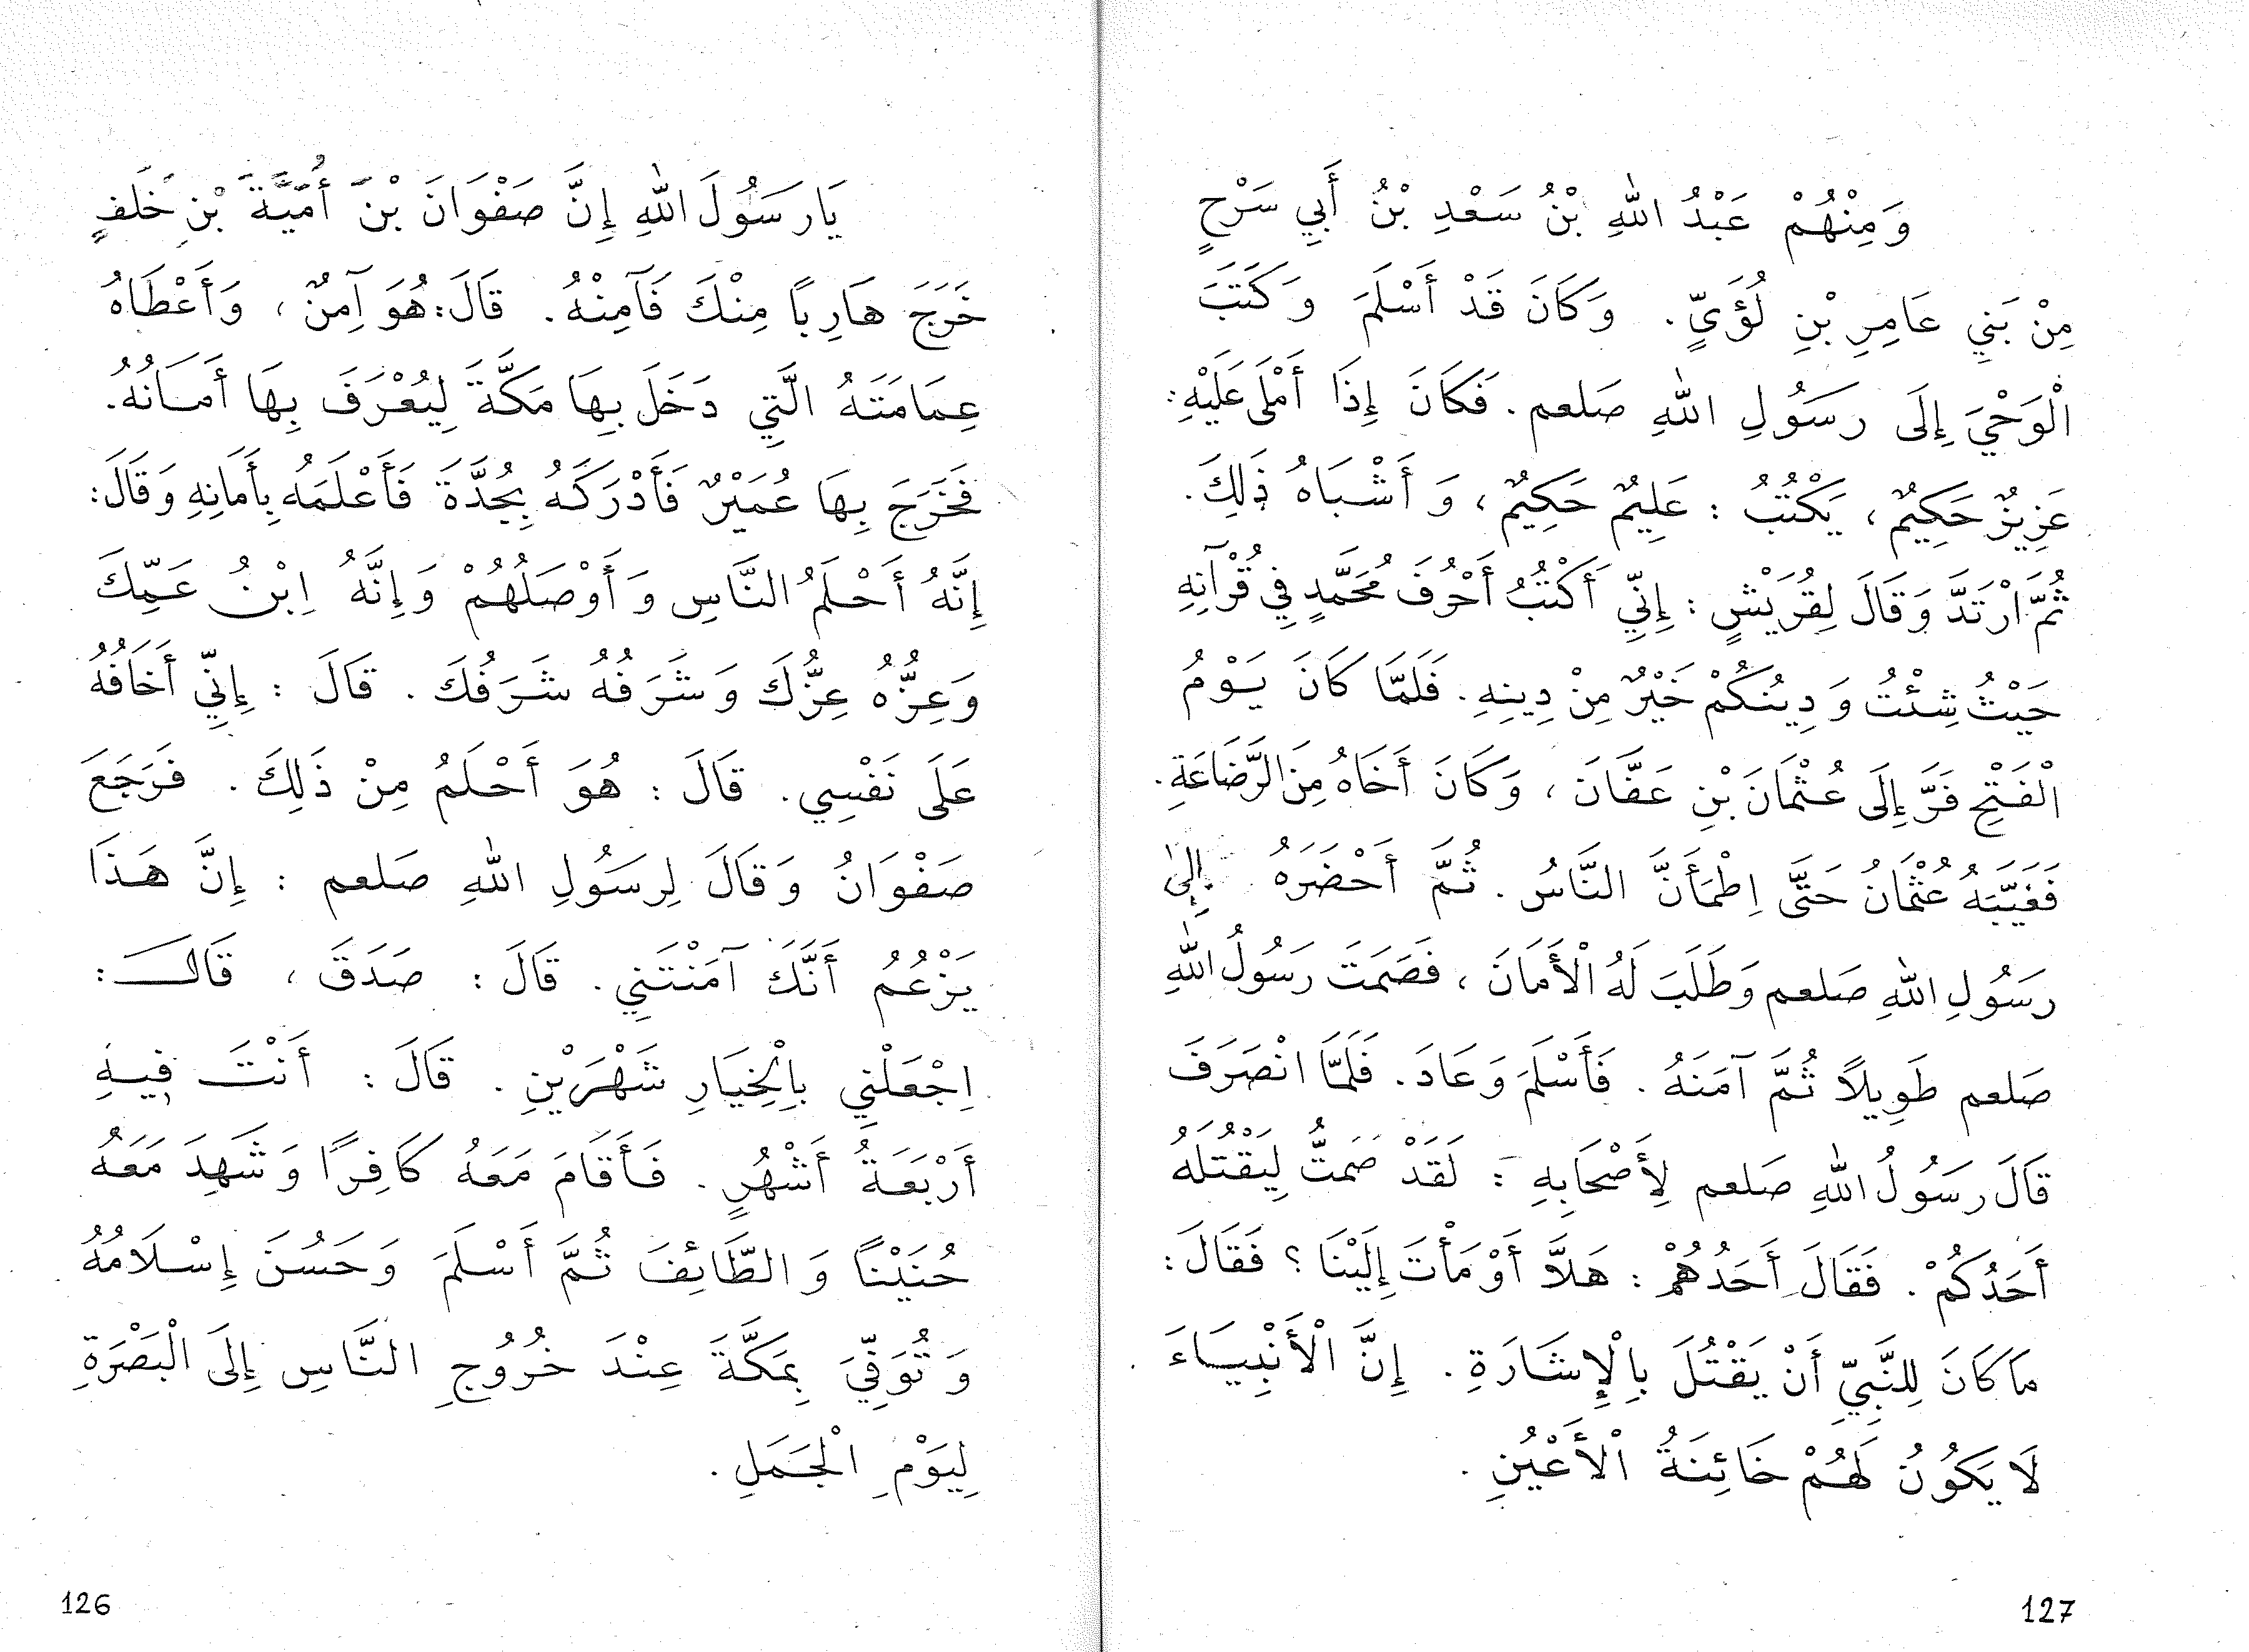 يَا رَسُولَ اللهِ إِنَّ صَفْوَانَ بْنَ أُمَيَّةَ بْنِ خَلَفٍ
خَرَجَ هَارِبًا مِنْكَ فَآمِنْهُ. قَالَ: هُوَ آمِنٌ، وَأَعْطَاهُ
عِمَامَتَهُ الَّتِي دَخَلَ بِهَا مَكَّةَ لِيُعْرَفَ بِهَا أَمَانُهُ.
فَخَرَجَ بِهَا عُمَيْرٌ فَأَدْرَكَهُ بِجُدَّةَ فَأَعْلَمَهُ بِأَمَانِهِ وَقَالَ:
إِنَّهُ أَحْلَمُ النَّاسِ وَأَوْصَلُهُمْ وَإِنَّهُ اِبْنُ عَمِّكَ
وَعِزُّهُ عِزُّكَ وَشَرَفُهُ شَرَفُكَ. قَالَ: إِنِّي أَخَافُهُ
عَلَى نَفْسِي. قَالَ: هُوَ أَحْلَمُ مِنْ ذَلِكَ. فَرَجَعَ
صَفْوَانُ وَقَالَ لِرَسُولِ اللهِ صَلعم: إِنَّ هَذَا
يَزْعُمُ أَنَّكَ آمَنْتَنِي. قَالَ: صَدَقَ، قَالَ:
اِجْعَلْنِي بِالْخِيَارِ شَهْرَيْنِ. قَالَ: أَنْتَ فِيهِ
أَرْبَعَةُ أَشْهُرٍ. فَأَقَامَ مَعَهُ كَافِرًا وَشَهِدَ مَعَهُ
حُنَيْنًا وَالطَّائِفَ ثُمَّ أَسْلَمَ وَحَسُنَ إِسْلَامُهُ
وَتُوَفِّيَ بِمَكَّةَ عِنْدَ خُرُوجِ النَّاسِ إِلَى الْبَصْرَةِ
لِيَوْمِ الْجَمَلِ.
126
وَمِنْهُمْ عَبْدُ اللهِ بْنُ سَعْدِ بْنُ أَبِي سَرْحٍ
مِنْ بَنِي عَامِرِ بْنِ لُؤَيٍّ. وَكَانَ قَدْ أَسْلَمَ وَكَتَبَ
الْوَحْيَ إِلَى رَسُولِ اللهِ صَلعم. فَكَانَ إِذَا أَمْلَى عَلَيْهِ:
عَزِيزٌ حَكِيمٌ، يَكْتُبُ: عَلِيمٌ حَكِيمٌ، وَأَشْبَاهُ ذَلِكَ.
ثُمَّ ارْتَدَّ وَقَالَ لِقُرَيْشٍ: إِنِّي أَكْتُبُ أَحْرُفَ مُحَمَّدٍ فِي قُرْآنِهِ
حَيْثُ شِئْتُ وَدِينُكُمْ خَيْرٌ مِنْ دِينِهِ. فَلَمَّا كَانَ يَوْمُ
الْفَتْحِ فَرَّ إِلَى عُثْمَانَ بْنِ عَفَّانَ، وَكَانَ أَخَاهُ مِنَ الرَّضَاعَةِ.
فَغَيَّبَهُ عُثْمَانُ حَتَّى اِطْمَأَنَّ النَّاسُ. ثُمَّ أَحْضَرَهُ إِلَى
رَسُولِ اللهِ صَلعم وَطَلَبَ لَهُ الْأَمَانَ، فَصَمَتَ رَسُولُ اللهِ
صَلعم طَوِيلًا ثُمَّ آمَنَهُ. فَأَسْلَمَ وَعَادَ. فَلَمَّا انْصَرَفَ
قَالَ رَسُولُ اللهِ صَلعم لِأَصْحَابِهِ: لَقَدْ صَمَتُّ لِيَقْتُلَهُ
أَحَدُكُمْ. فَقَالَ أَحَدُهُمْ: هَلَّا أَوْمَأْتَ إِلَيْنَا؟ فَقَالَ:
مَا كَانَ لِلنَّبِيِّ أَنْ يَقْتُلَ بِالْإِشَارَةِ. إِنَّ الْأَنْبِيَاءَ
لَا يَكُونُ لَهُمْ خَائِنَةُ الْأَعْيُنِ.
127